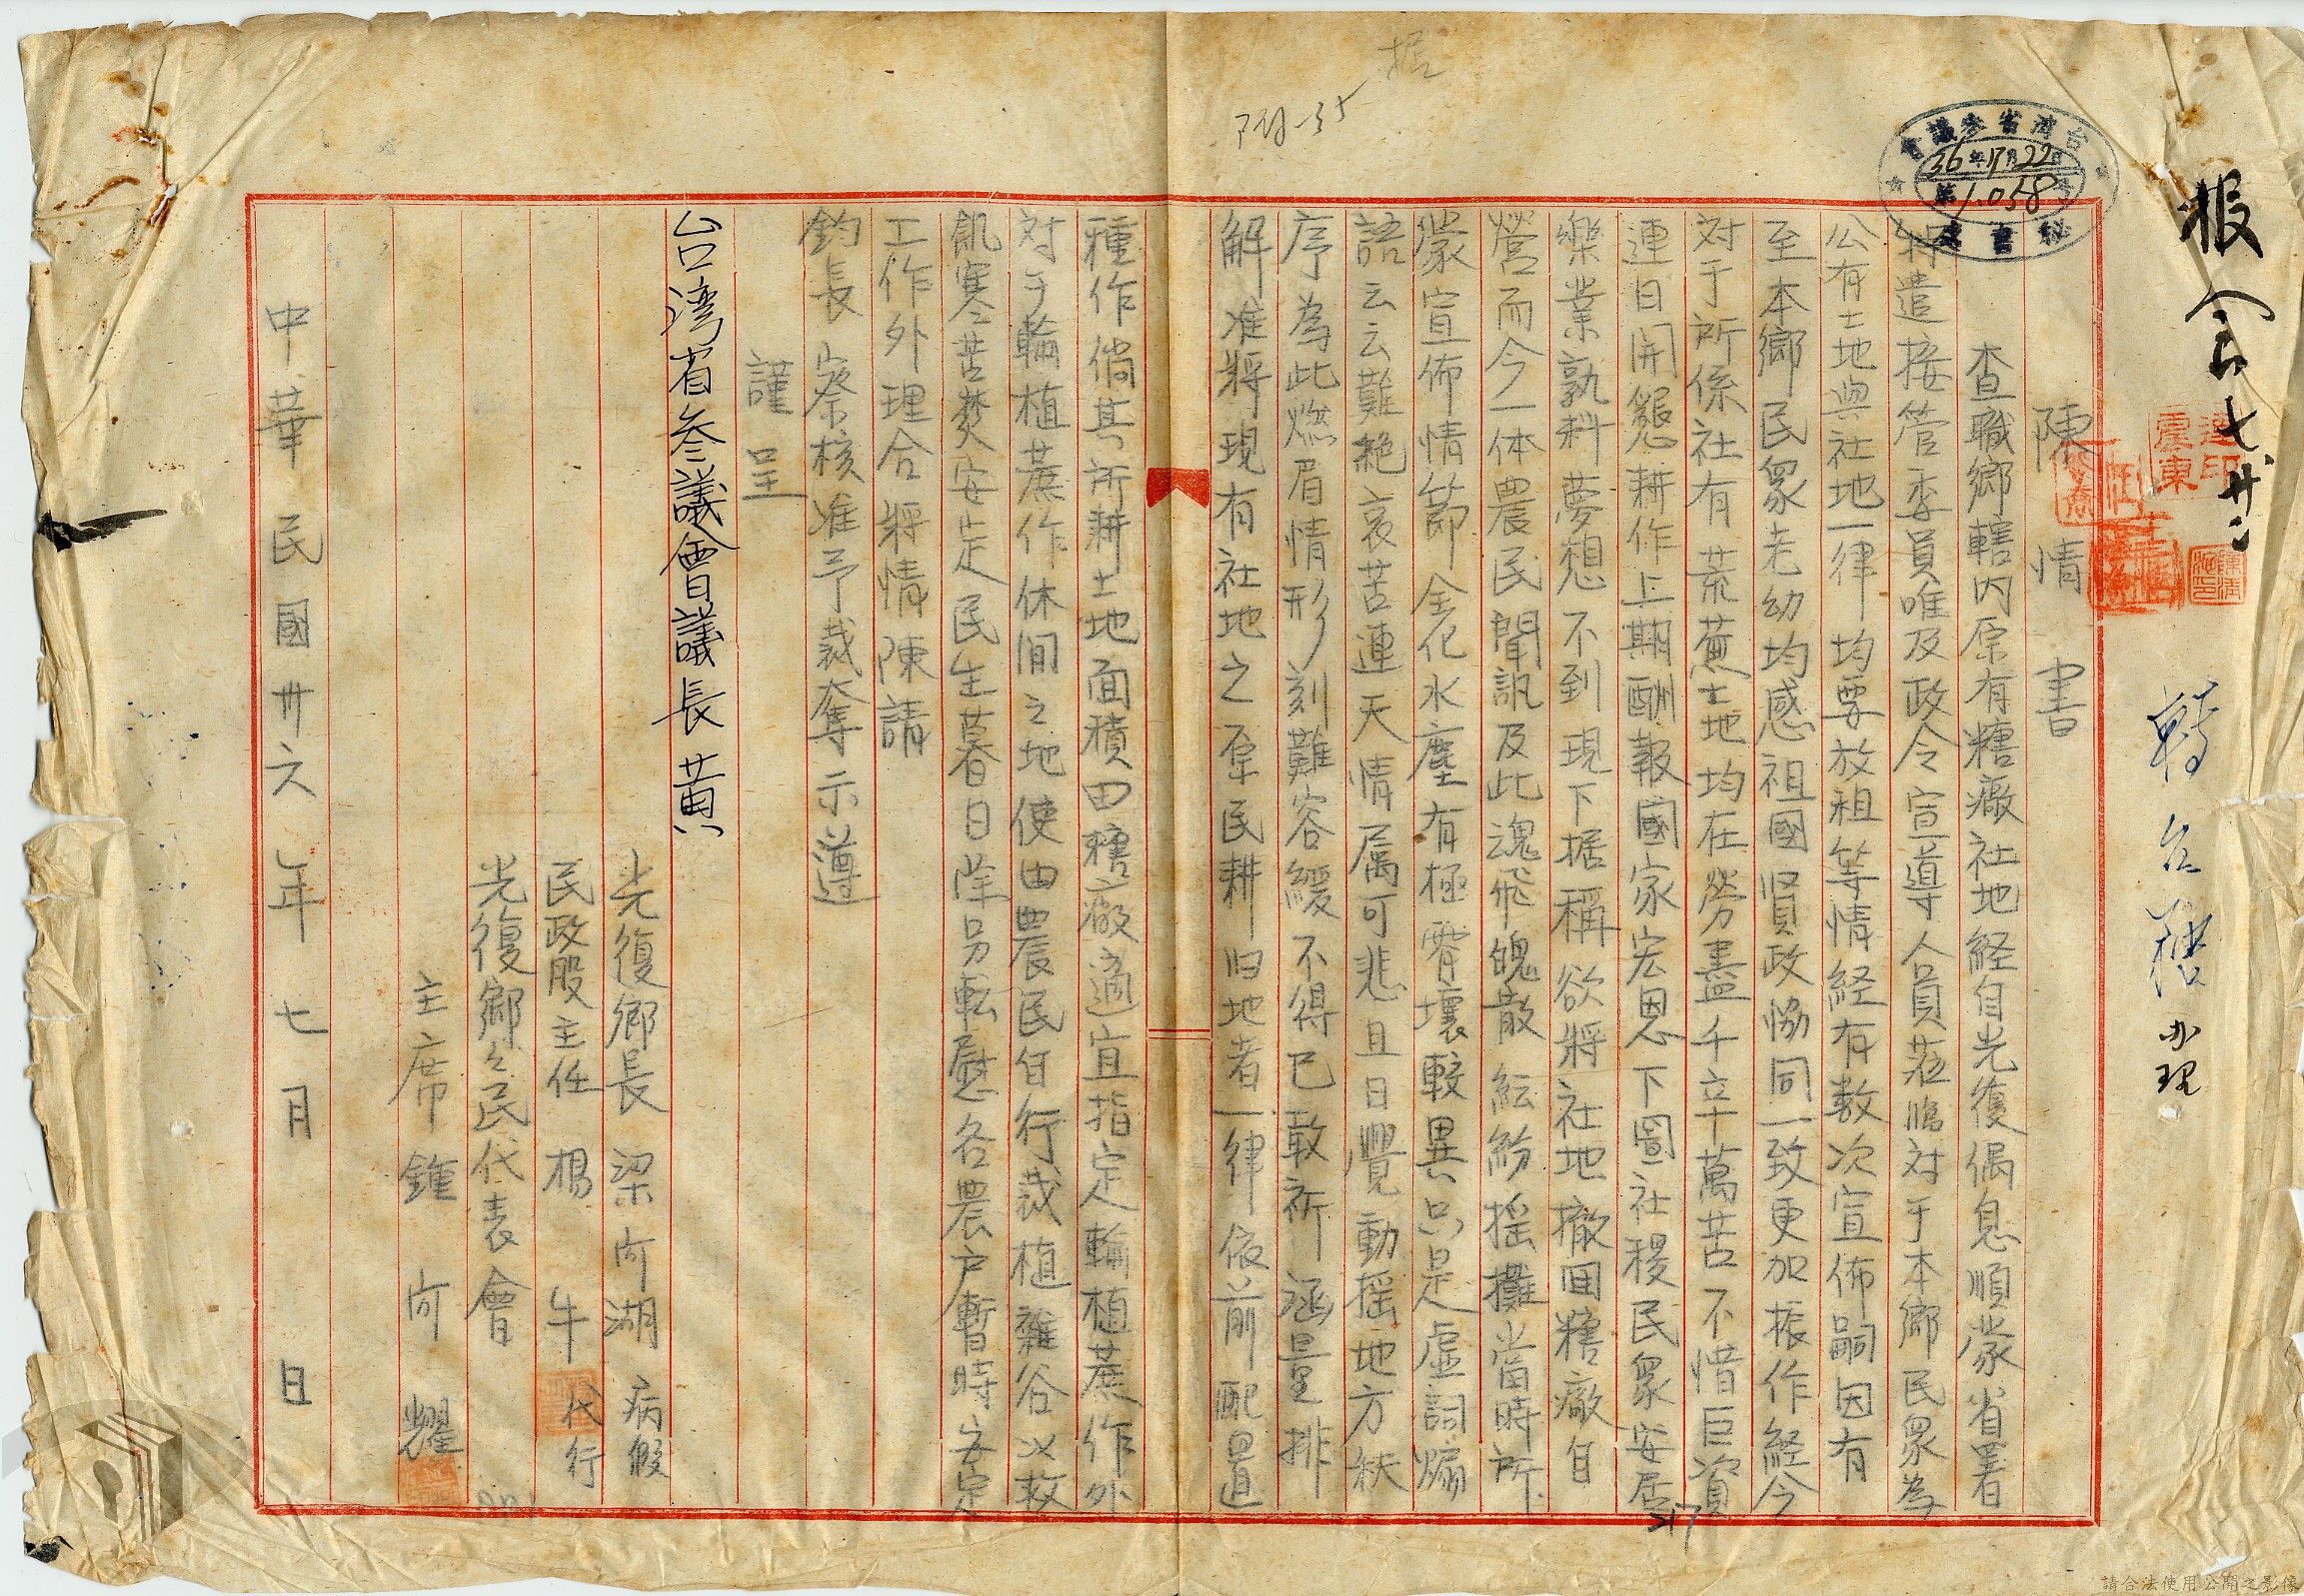 報會 七、廿二
轉台糖办理
台灣省參議會
36年7月22日
第1.058號
秘書處
附-35
陳情書
查職鄉轄内原有糖廠社地経自光復偈息順蒙省署
特遣接管委員唯及政令宣導人員蒞臨対于本鄉民眾為
公有土地與社地一律均要放租等情経有数次宣佈嗣因有
至本鄉民眾老幼均感祖國贤政協同一致更加振作経今
対于所係社有荒蕪土地均在勞盡千辛萬苦不惜巨資
連日開懇耕作上期酬報國家宏恩下圖社稷民眾安居
樂業孰料夢想不到現下据稱欲將社地撤囬糖廠自
營而今一体農民聞訊及此魂飛魄散紜紛摇攤當時所
蒙宣佈情節全化水塵有極霄壤較異只是虛詞煽
語云云難絶哀苦連天情属可悲且日覺動摇地方秩
序為此燃眉情形刻難容緩不得已敢祈涵量排
解准將現有社地之原民耕旧地者一律依前配置
種作倘其所耕土地面積由糖廠適宜指定輪植蔗作外
対于輪植蔗作休閒之地使由農民自行裁植雜谷以救
飢寒苦焚安定民生暮日除另転慰各農户暫時安定
工作外理合將情陳請
鈞長察核准予裁奪示遵
謹呈
台湾省參議會議長黄
光復鄉長 梁阿湖 病假
民政股主任 楊牛 代行
光復鄉々民代表會
主席 鍾阿耀
中華民國卅六年七月 日
217
請合法使用公開之影像